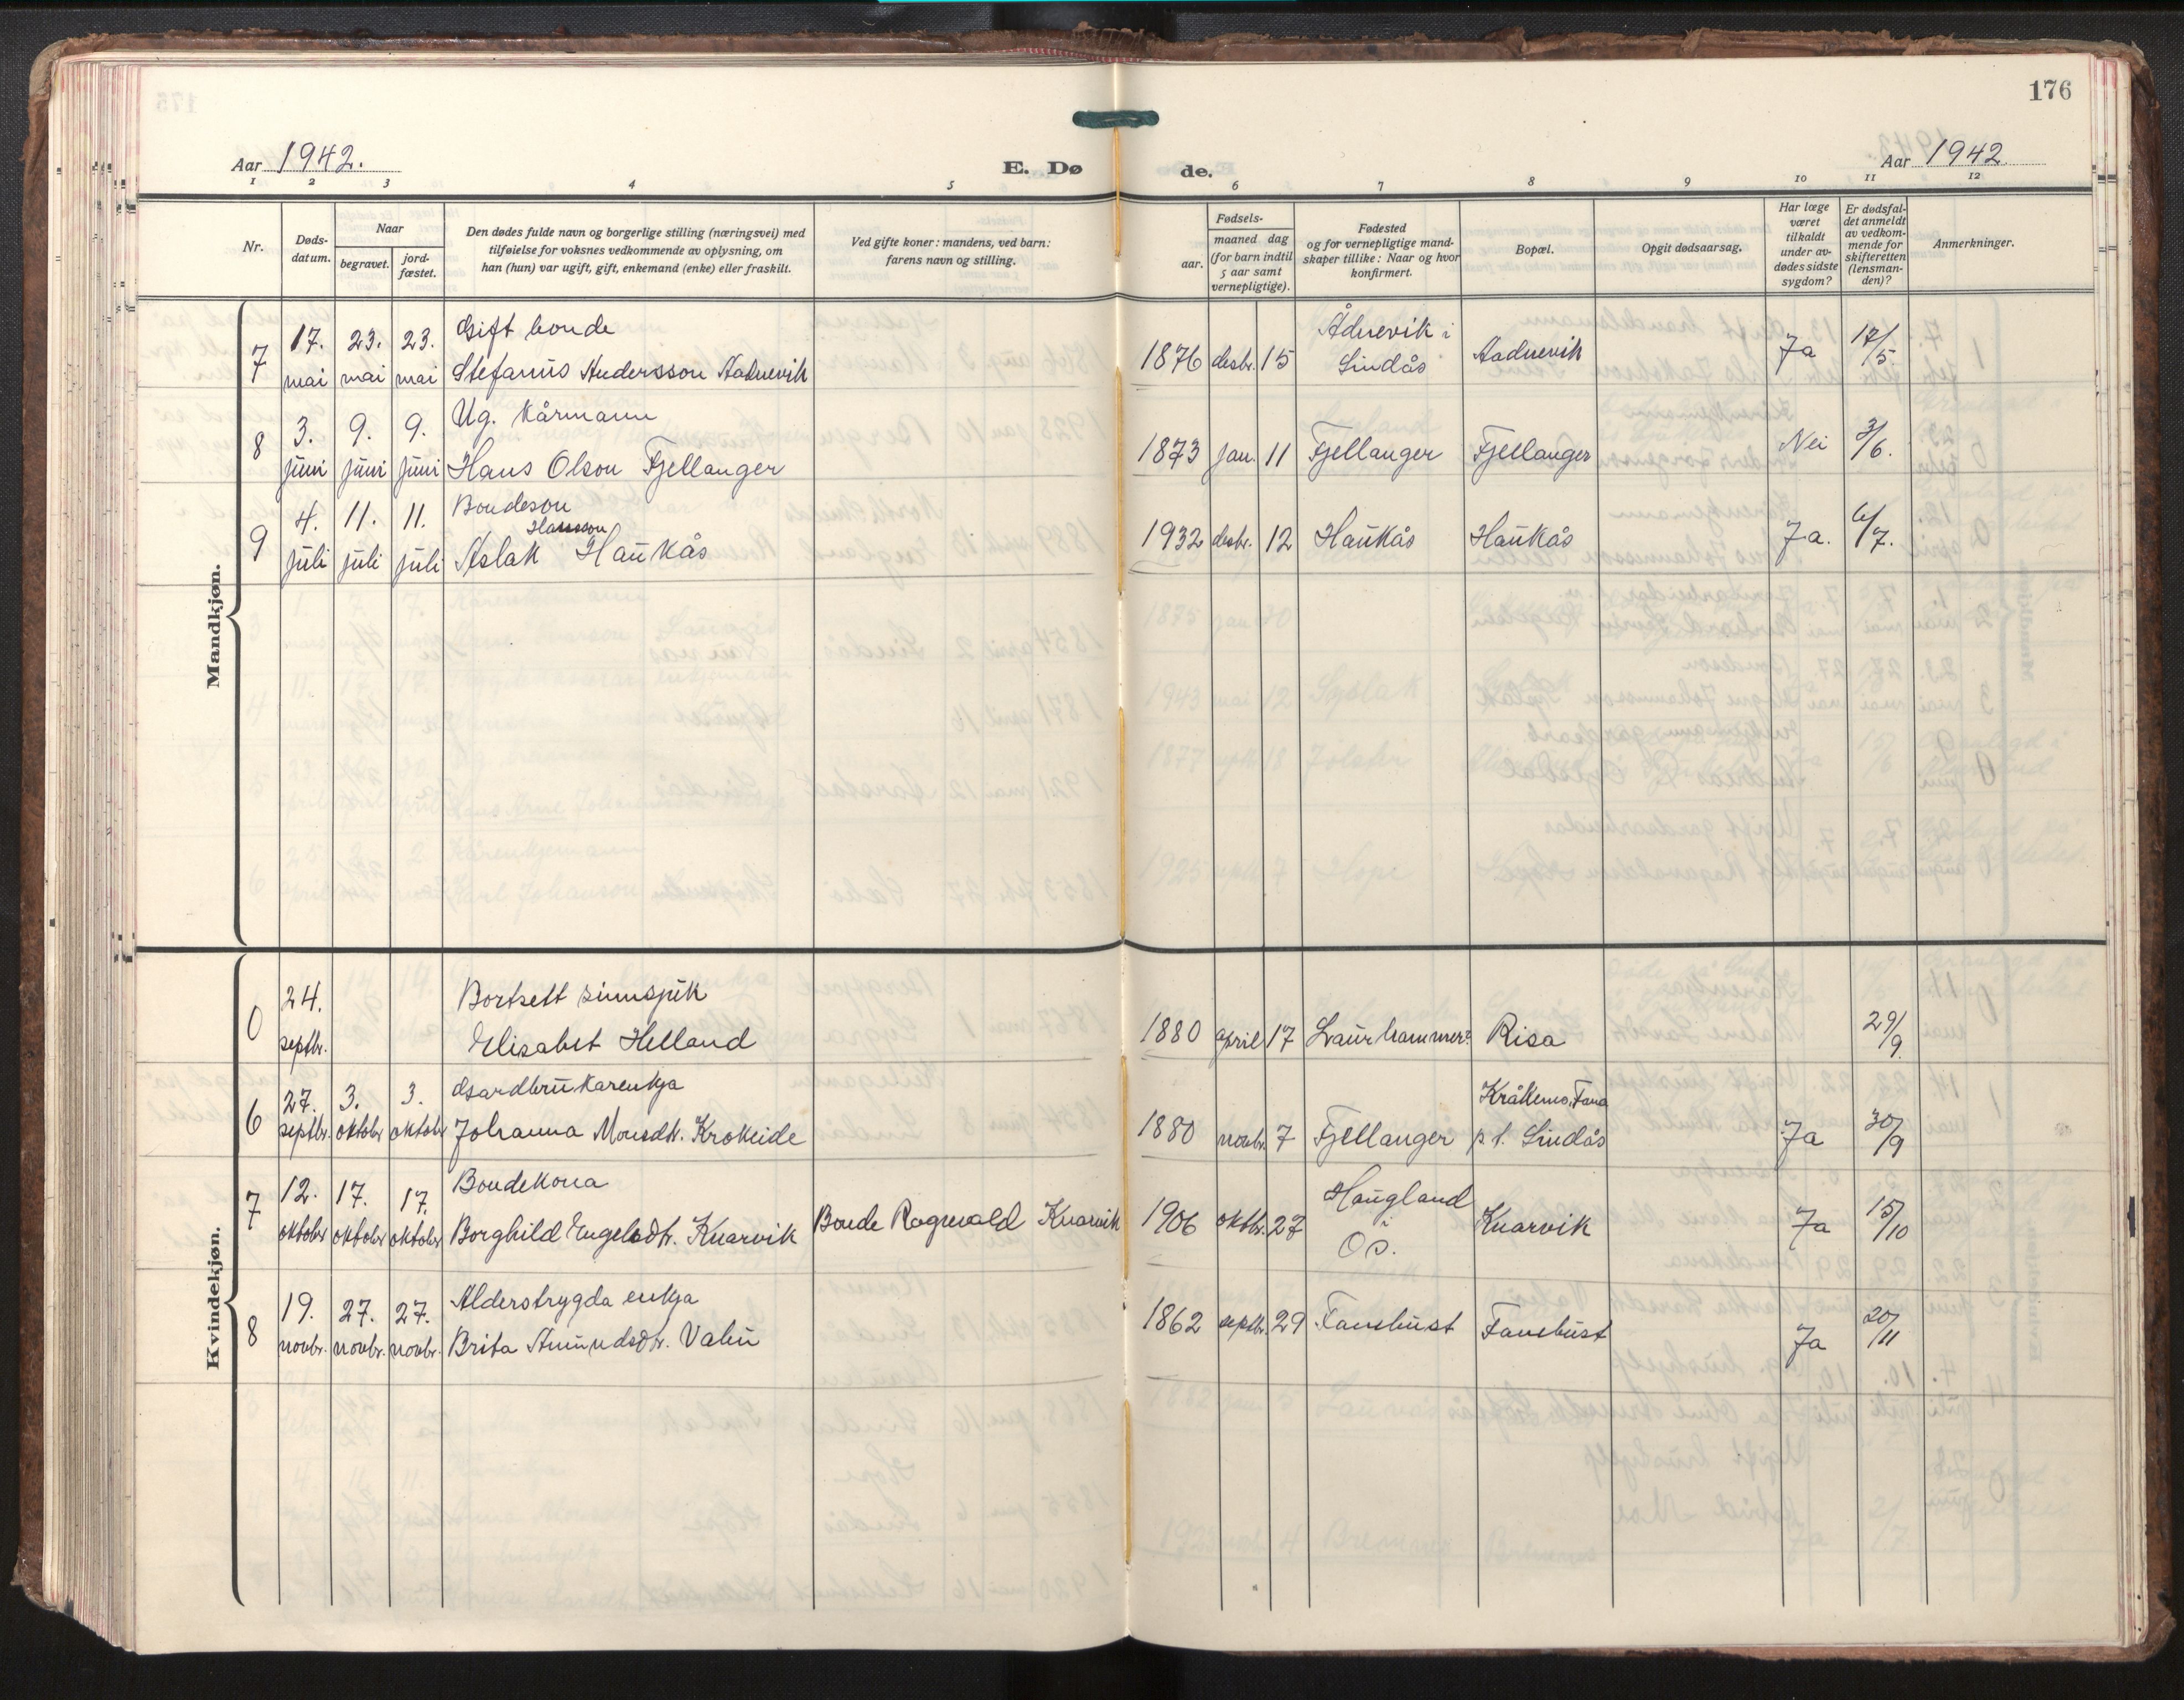 176
Aar 1942.
E. Dø
de.
Aar 1942
1 2 3 4 5 6 7 8 9 10 11 12
Nr.
Døds-
datum.
Naar
begravet.
jord-
fæstet.
Den dødes fulde navn og borgerlige stilling (næringsvei) med
tilføielse for voksnes vedkommende av oplysning, om
han (hun) var ugift, gift, enkemand (enke) eller fraskilt.
Ved gifte koner: mandens, ved barn:
farens navn og stilling.
Fødsels-
aar.
maaned dag
(for barn indtil
5 aar samt
vernepligtige).
Fødested
og for vernepligtige mand-
skaper tillike: Naar og hvor
konfirmert.
Bopæl.
Opgit dødsaarsag.
Har læge
været
tilkaldt
under av-
dødes sidste
sygdom?
Er dødsfal-
det anmeldt
av vedkom-
mende for
skifteretten
(lensman-
den)?
Anmerkninger.
Mandkjøn.
7 17. mai 23. mai 23. mai Gift bonde
Stefanus Andersson Aadnevik 1876 desbr. 15 Ådnevik i
Lindås Aadnevik Ja 17/5.
8 3. juni 9. juni 9. juni Ug. kårmann
Hans Olson Fjellanger 1873 jan. 11 Fjellanger Fjellanger Nei 3/6.
9 4. juli 11. juli 11. juli Bondeson
Hansson
Aslak Haukås 1932 desbr. 12 Haukås Haukås Ja. 6/7.
Kvindekjøn.
0 24. septbr. Bortsett sinnsjuk
Elisabet Helland 1880 april 17 Laurhammer? Risa 29/9.
6 27. septbr. 3. oktobr 3. oktobr Gardbrukarenkja
Johanna Monsdtr. Krokeide 1880 novbr. 7 Fjellanger Kråkenes, Fana
p.t. Lindås Ja 30/9
7 12. oktobr 17. oktobr 17. oktobr Bondekona
Borghild Engelsdtr. Knarvik Bonde Ragnvald Knarvik 1906 oktbr. 27 Haugland
i
Os. Knarvik Ja 15/10
8 19. novbr. 27. novbr. 27. novbr. Alderstrygda enkja
Brita Amundsdtr. Valen 1862 septbr. 29 Fanebust Fanebust Ja 20/11